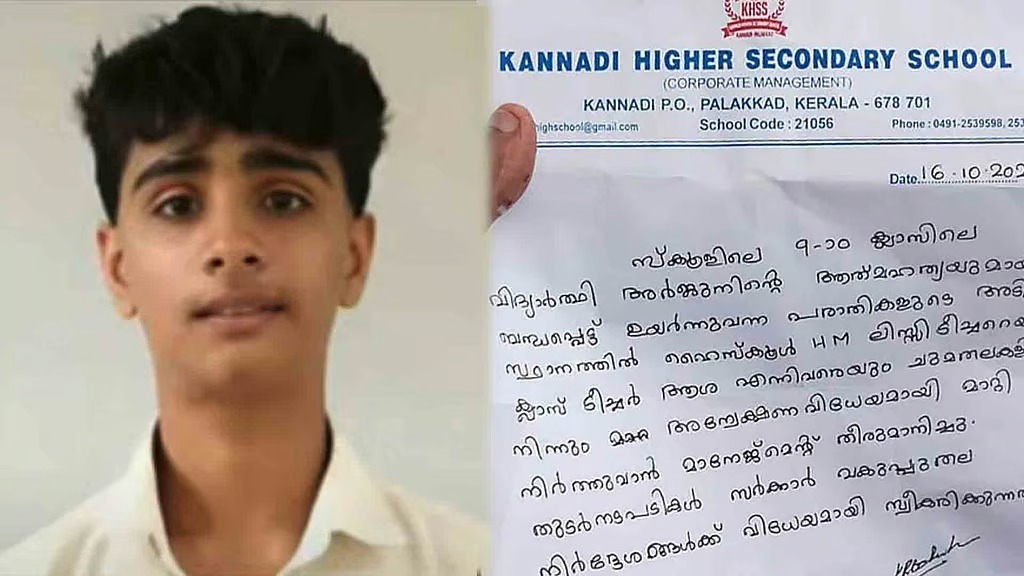 KHSS
KANNADI HIGHER SECONDARY SCHOOL
(CORPORATE MANAGEMENT)
KANNADI P.O., PALAKKAD, KERALA - 678 701
highschool@gmail.com School Code : 21056 Phone : 0491-2539598, 253
Date 16-10-202
സ്കൂളിലെ 9-ാം ക്ലാസിലെ
വിദ്യാർത്ഥി അർജ്ജുനിന്റെ ആത്മഹത്യയുമായ
ബന്ധപ്പെട്ട് ഉയർന്നുവന്ന പരാതികളുടെ അടി
സ്ഥാനത്തിൽ ഹൈസ്കൂൾ HM ലിസ്സി ടീച്ചറെയ
ക്ലാസ് ടീച്ചർ ആശ എന്നിവരെയും ചുമതലകളി
നിന്നും അന്വേക്ഷണ വിധേയമായി മാറ്റി
നിർത്തുവാൻ മാനേജ്മെന്റ് തീരുമാനിച്ചു.
തുടർനടപടികൾ സർക്കാർ വകുപ്പുതല
നിർദ്ദേശങ്ങൾക്ക് വിധേയമായി സ്വീകരിക്കുന്നത